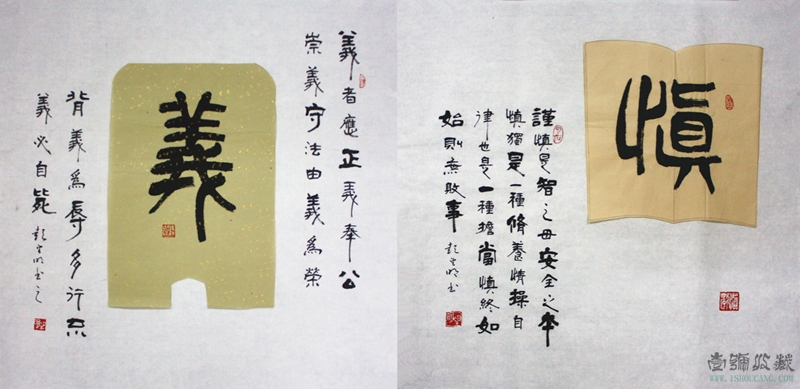 義者應正義奉公
崇義守法由義為榮
義
背義為辱多行不
義必自斃
慎
謹慎是智之母安全之本
慎獨是一種脩養情操自
律也是一種擔當慎終如
始則無敗事
壹號收藏
www.1shoucang.com